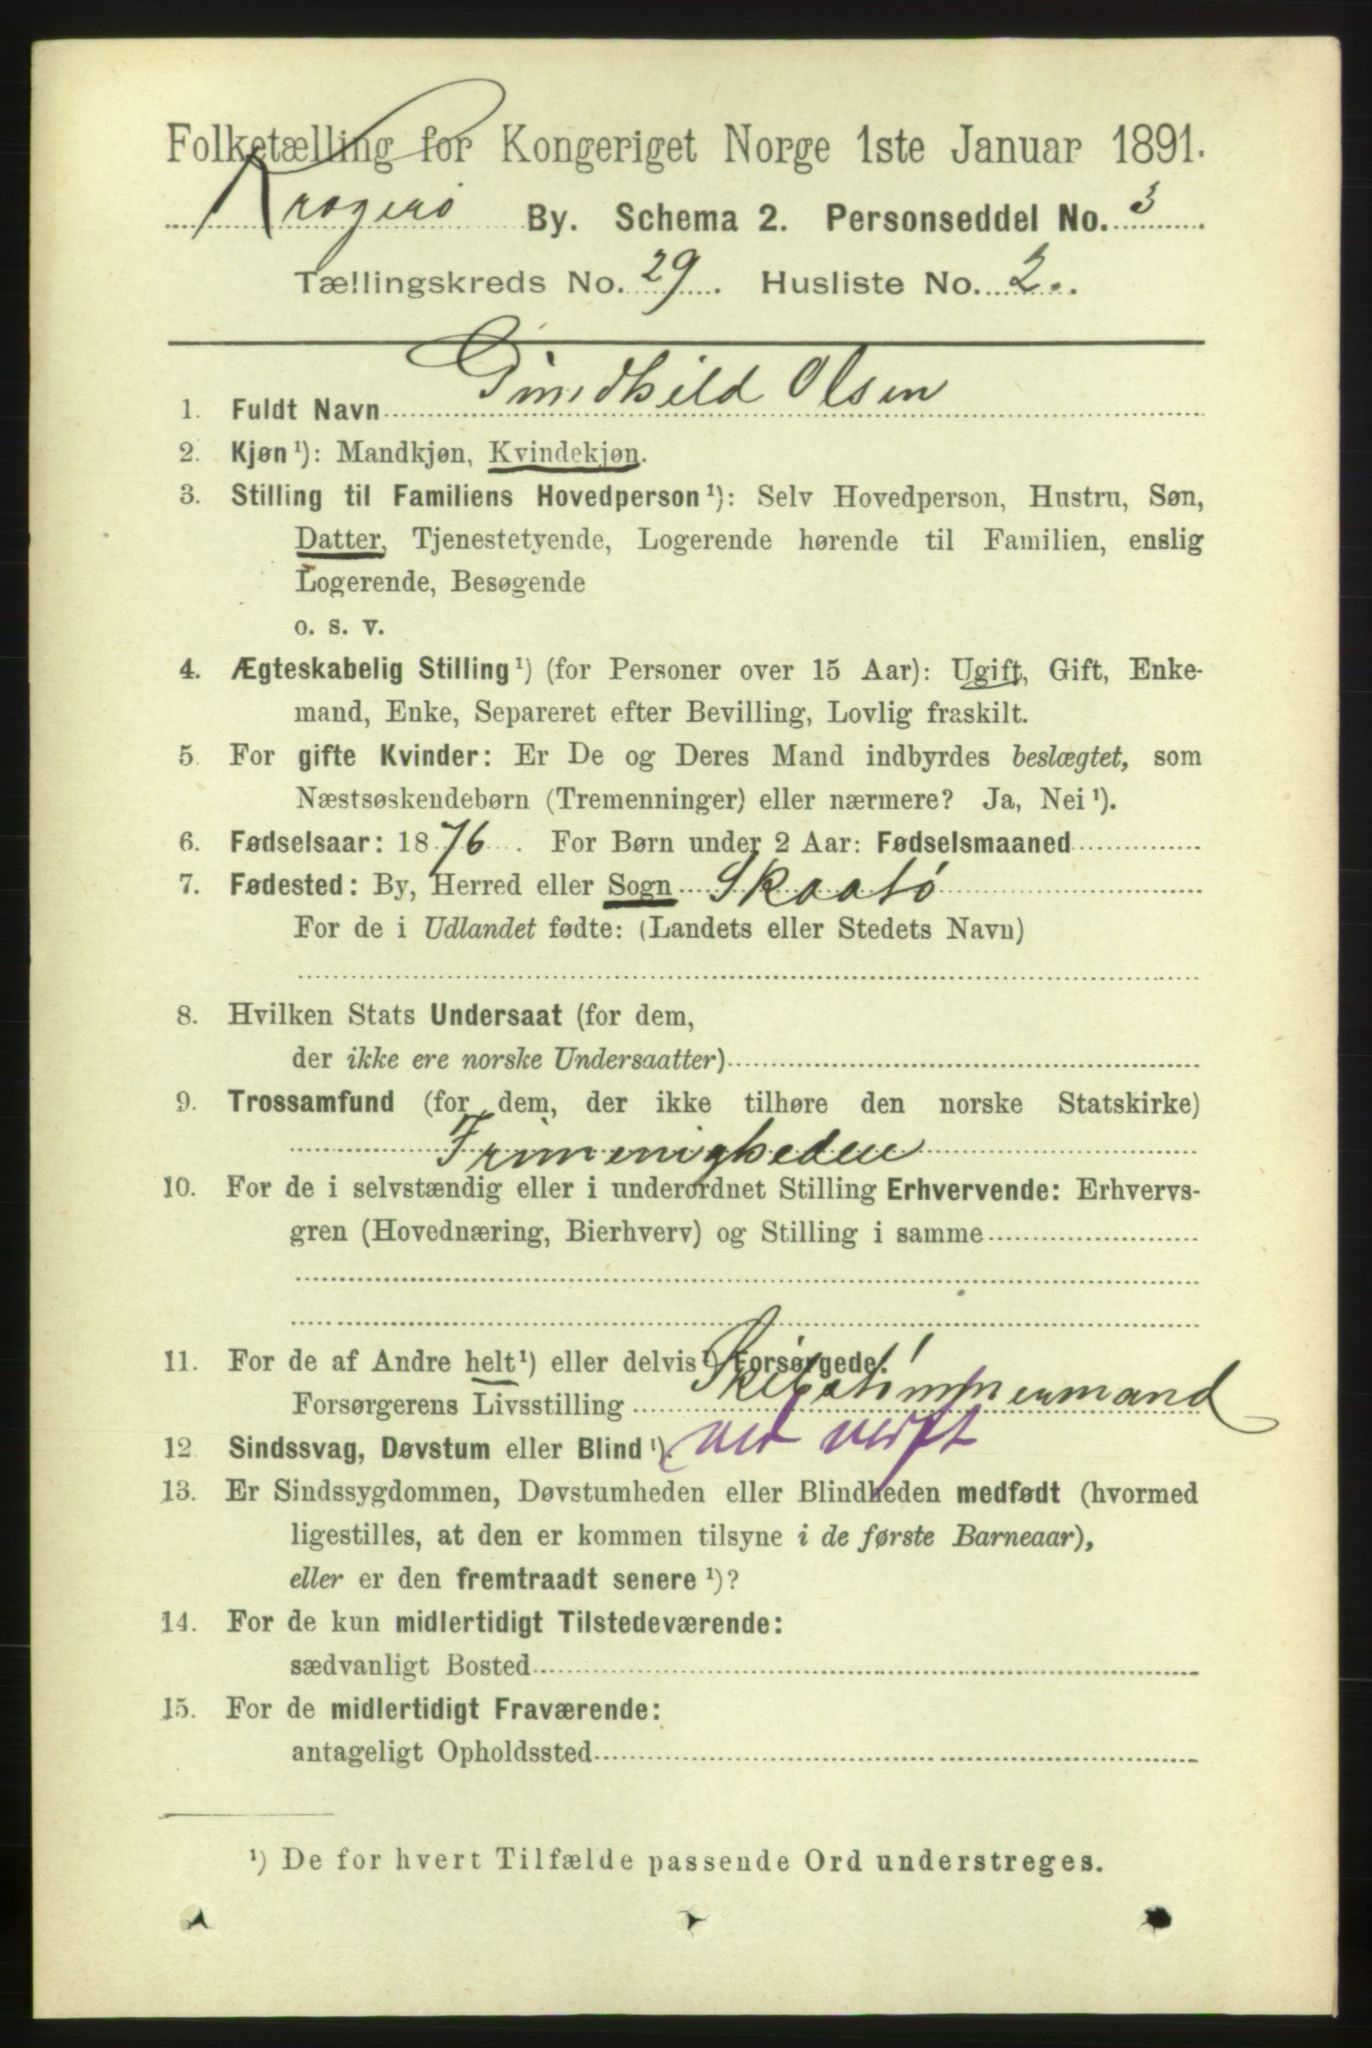 Folketælling for Kongeriget Norge 1ste Januar 1891.
Kragerø By. Schema 2. Personseddel No. 3
Tællingskreds No. 29. Husliste No. 2.
1. Fuldt Navn Gundhild Olsen
2. Kjøn¹): Mandkjøn, Kvindekjøn.
3. Stilling til Familiens Hovedperson¹): Selv Hovedperson, Hustru, Søn,
Datter, Tjenestetyende, Logerende hørende til Familien, enslig
Logerende, Besøgende
o. s. v.
4. Ægteskabelig Stilling¹) (for Personer over 15 Aar): Ugift, Gift, Enke-
mand, Enke, Separeret efter Bevilling, Lovlig fraskilt.
5. For gifte Kvinder: Er De og Deres Mand indbyrdes beslægtet, som
Næstsøskendebørn (Tremenninger) eller nærmere? Ja, Nei¹).
6. Fødselsaar: 1876. For Børn under 2 Aar: Fødselsmaaned
7. Fødested: By, Herred eller Sogn Skaatø
For de i Udlandet fødte: (Landets eller Stedets Navn)
8. Hvilken Stats Undersaat (for dem,
der ikke ere norske Undersaatter)
9. Trossamfund (for dem, der ikke tilhøre den norske Statskirke)
Frimenigheden
10. For de i selvstændig eller i underordnet Stilling Erhvervende: Erhvervs-
gren (Hovednæring, Bierhverv) og Stilling i samme
11. For de af Andre helt¹) eller delvis¹) Forsørgede:
Forsørgerens Livsstilling Skibstømmermand
ved verft
12. Sindssvag, Døvstum eller Blind¹).
13. Er Sindssygdommen, Døvstumheden eller Blindheden medfødt (hvormed
ligestilles, at den er kommen tilsyne i de første Barneaar),
eller er den fremtraadt senere¹)?
14. For de kun midlertidigt Tilstedeværende:
sædvanligt Bosted
15. For de midlertidigt Fraværende:
antageligt Opholdssted
¹) De for hvert Tilfælde passende Ord understreges.